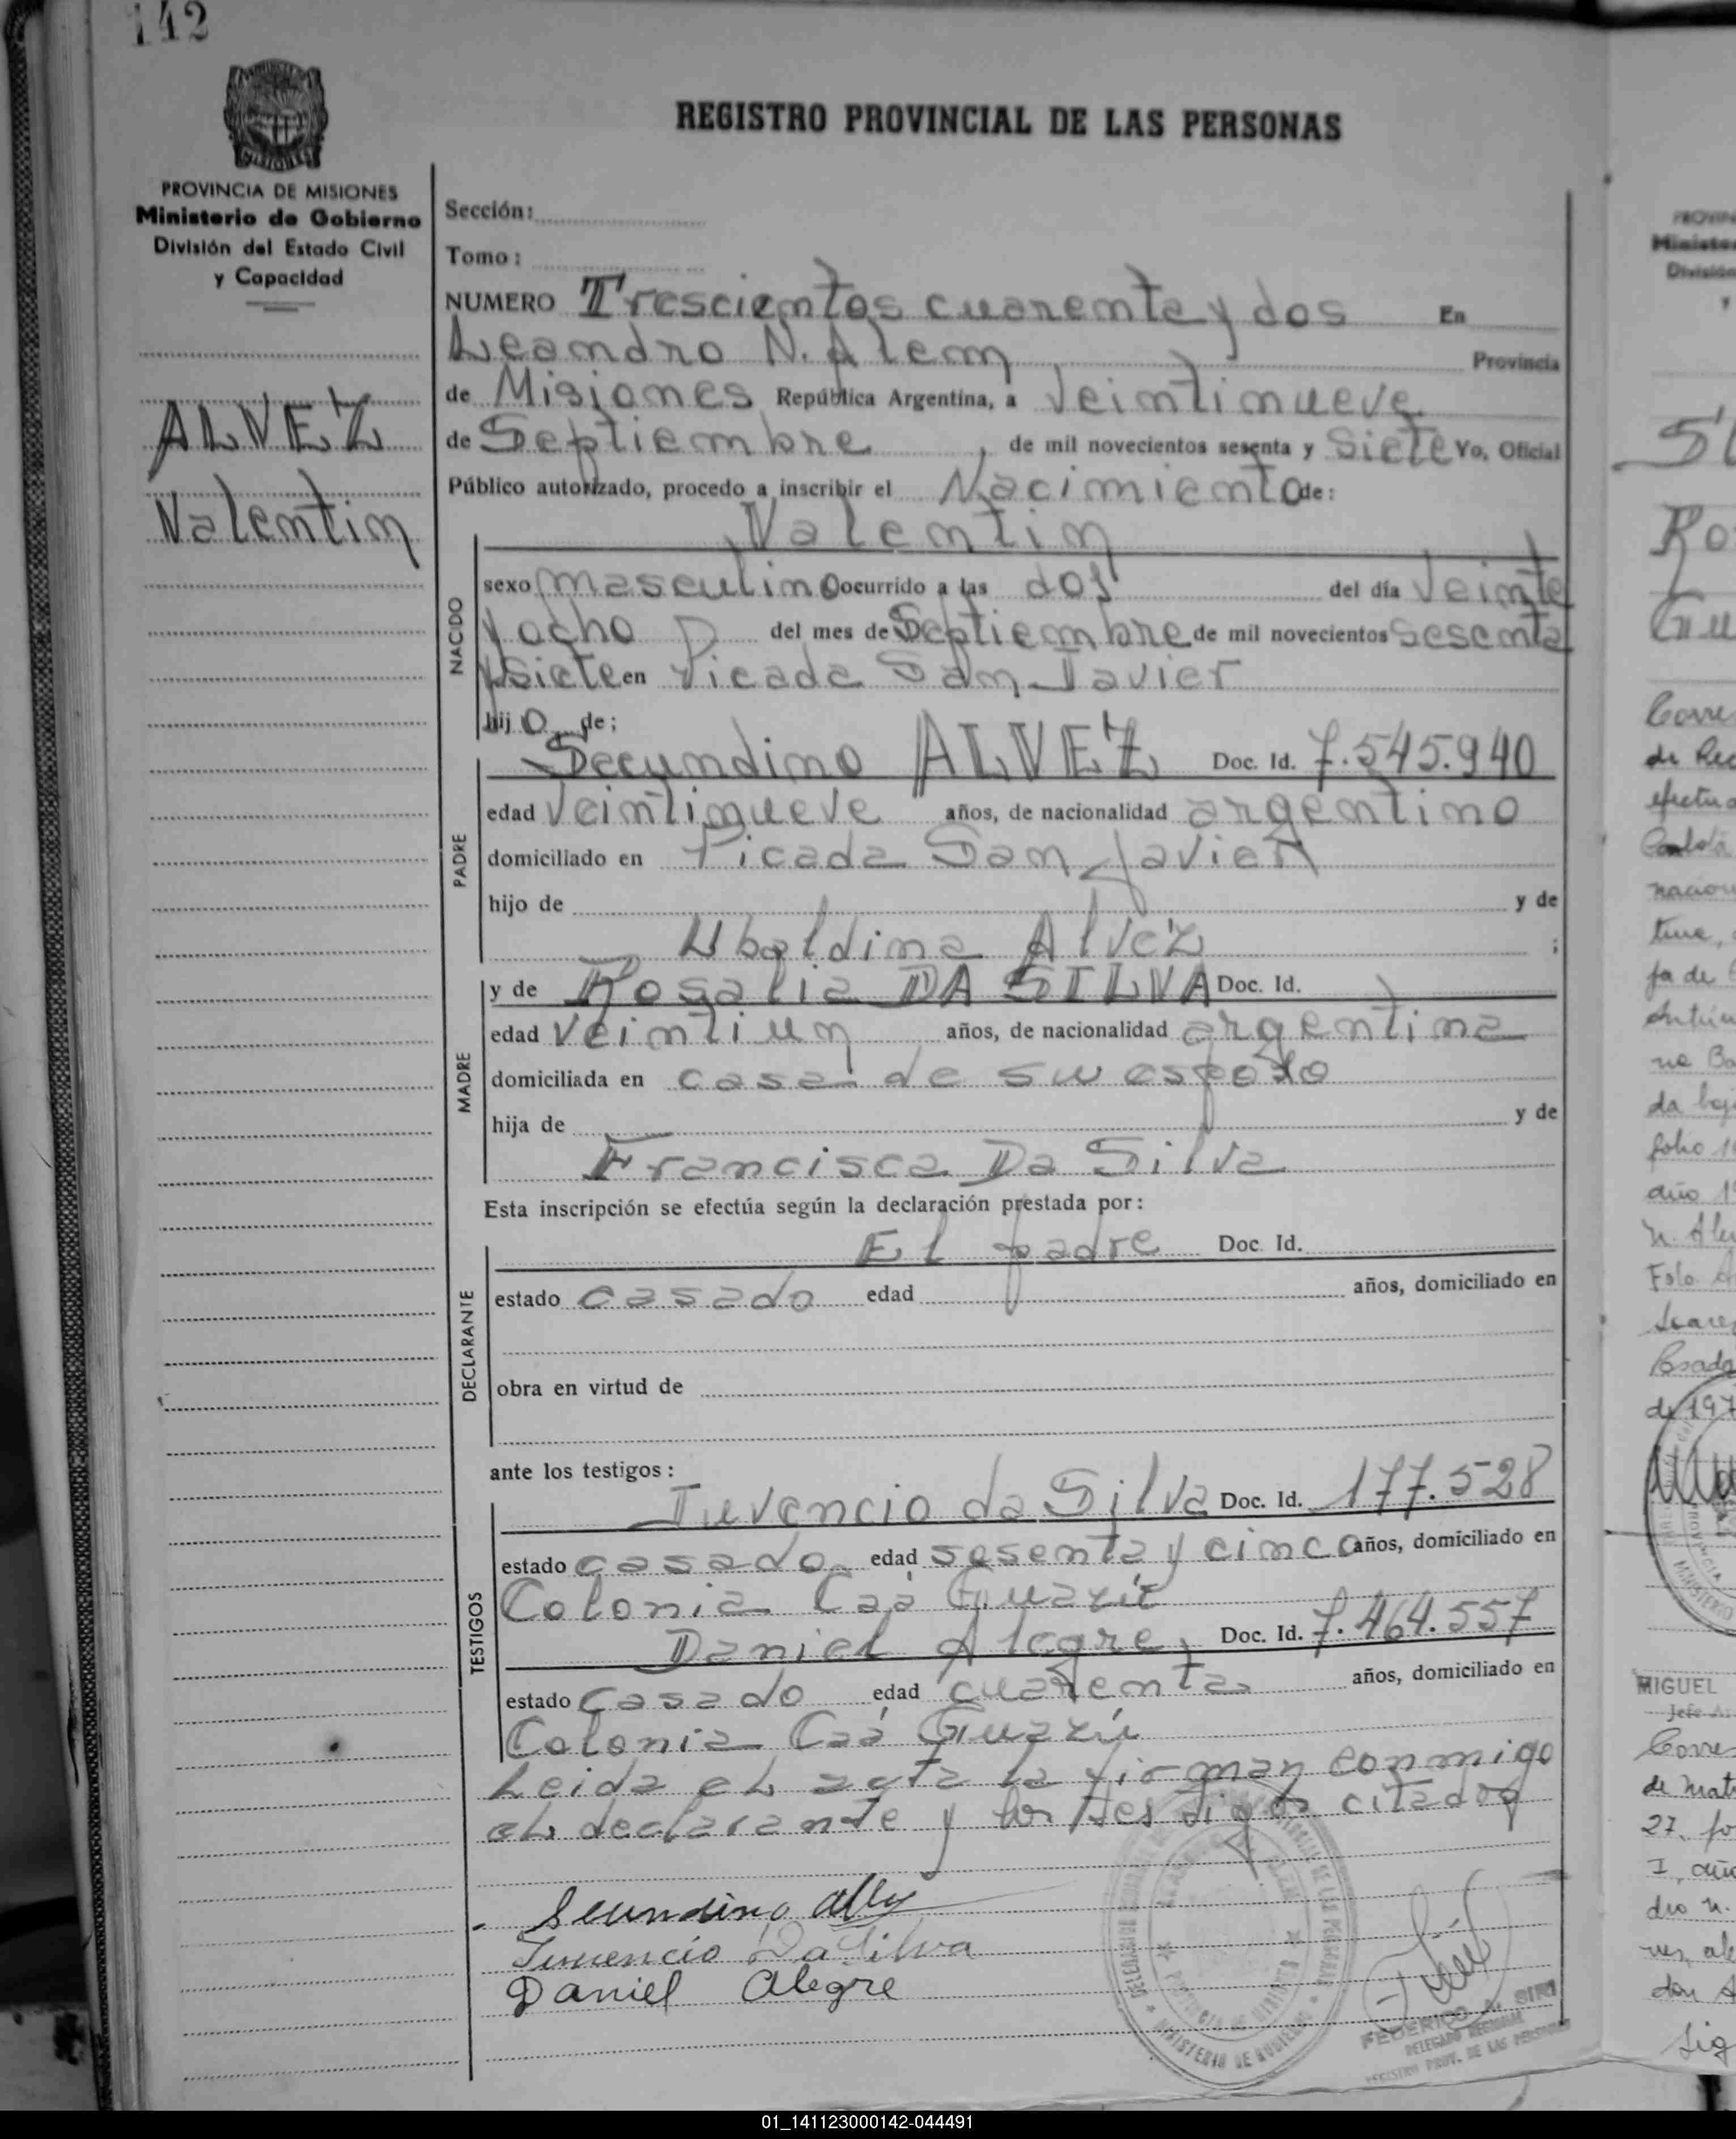 142
PROVINCIA DE MISIONES
Ministerio de Gobierno
División del Estado Civil
y Capacidad
ALVEZ
Valentin
REGISTRO PROVINCIAL DE LAS PERSONAS
Sección:
Tomo:
NUMERO Trescientos cuarenta y dos En
Leandro N. Alem Provincia
de Misiones República Argentina, a Veintinueve
de Septiembre, de mil novecientos sesenta y Siete Yo, Oficial
Público autorizado, procedo a inscribir el Nacimiento de:
Valentin
NACIDO
sexo masculino ocurrido a las dos del día Veinte
y ocho del mes de Septiembre de mil novecientos sesenta
y siete en Picada San Javier
hijo de;
PADRE
Secundino ALVEZ Doc. Id. 7.545.940
edad Veintinueve años, de nacionalidad argentino
domiciliado en Picada San Javier
hijo de y de
Ubaldina Alvez ;
MADRE
y de Rosalia DA SILVA Doc. Id.
edad Veintiun años, de nacionalidad argentina
domiciliada en casa de su esposo
hija de y de
Francisca Da Silva
Esta inscripción se efectúa según la declaración prestada por:
DECLARANTE
El padre Doc. Id.
estado casado edad años, domiciliado en
obra en virtud de
ante los testigos:
TESTIGOS
Juvencio da Silva Doc. Id. 177.528
estado casado edad sesenta y cinco años, domiciliado en
Colonia Caá Guazú
Daniel Alegre Doc. Id. 7.464.557
estado casado edad cuarenta años, domiciliado en
Colonia Caá Guazú
Leida el acta la firman conmigo
el declarante y los testigos citados
Secundino
Juvencio Da Silva
Daniel Alegre
MINISTERIO DE GOBIERNO
FEDERICO A.
DELEGADO REGIONAL
REGISTRO PROV. DE LAS PERSONAS
MIGUEL
01_141123000142-044491